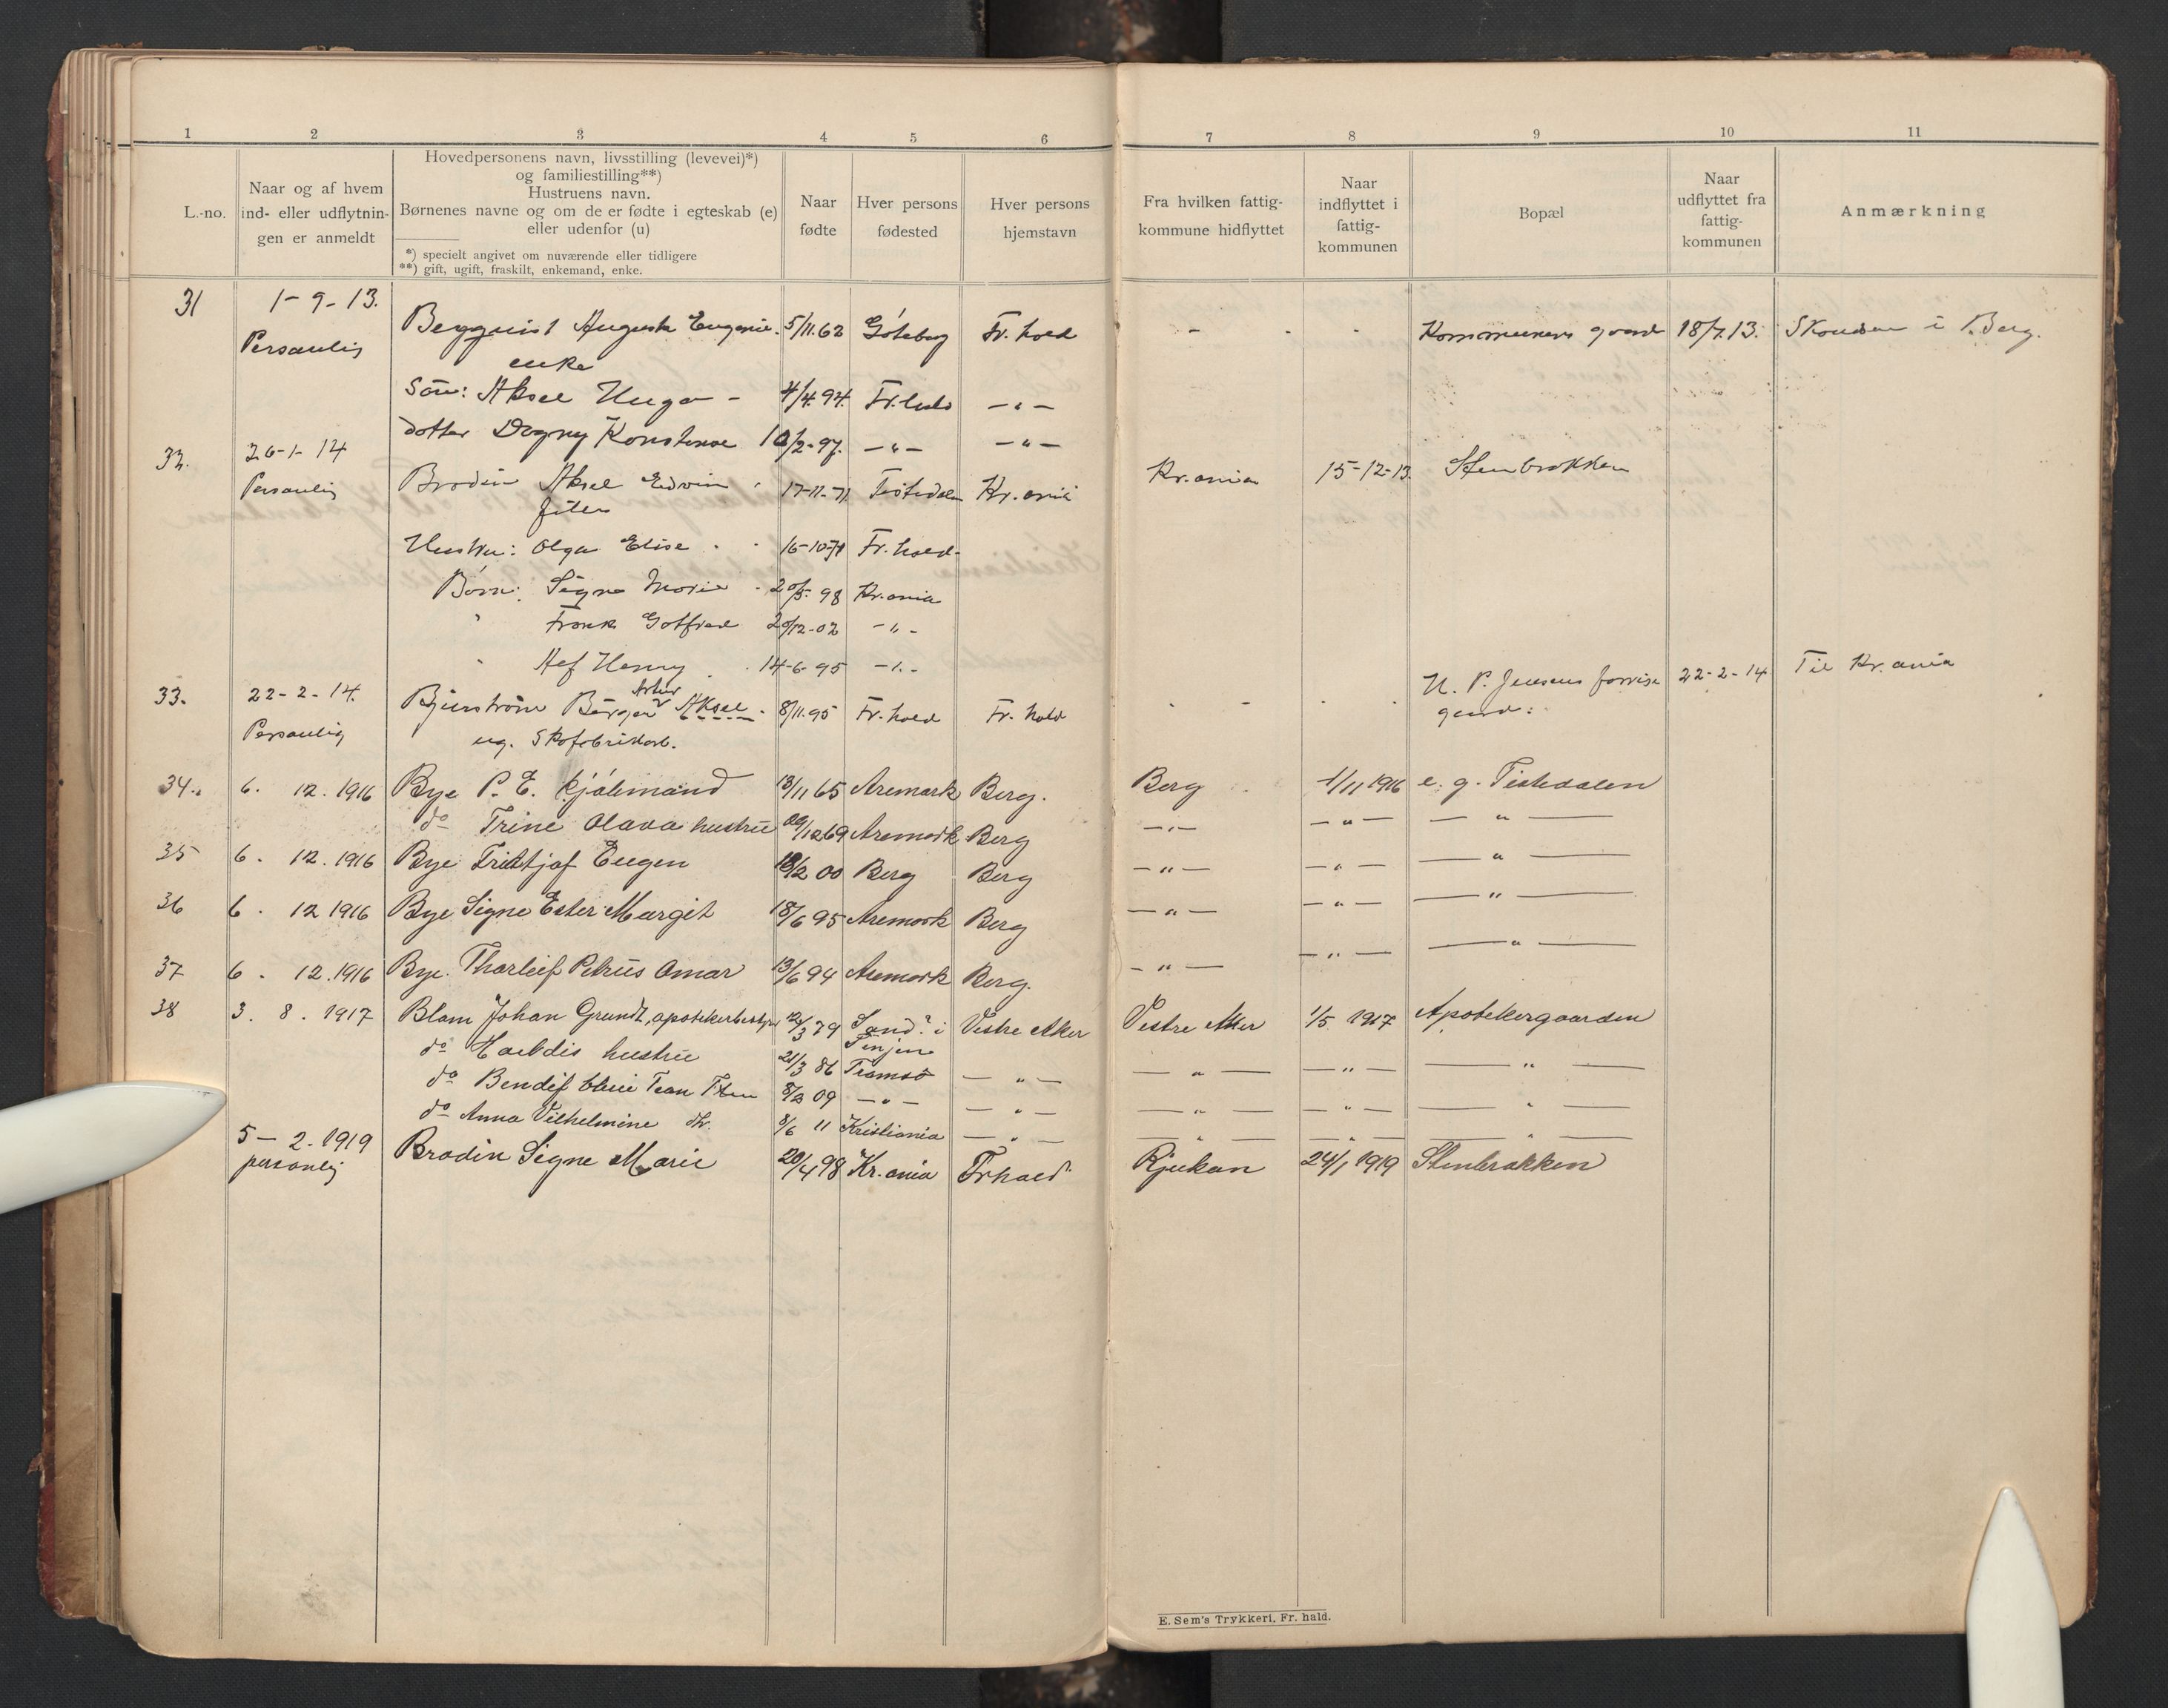 1 2 3 4 5 6 7 8 9 10 11
L.-no.
Naar og af hvem
ind- eller udflytnin-
gen er anmeldt
Hovedpersonens navn, livsstilling (levevei)*)
og familiestilling**)
Hustruens navn.
Børnenes navne og om de er fødte i egteskab (e)
eller udenfor (u)
*) specielt angivet om nuværende eller tidligere
**) gift, ugift, fraskilt, enkemand, enke.
Naar
fødte
Hver persons
fødested
Hver persons
hjemstavn
Fra hvilken fattig-
kommune hidflyttet
Naar
indflyttet i
fattig-
kommunen
Bopæl
Naar
udflyttet fra
fattig-
kommunen
Anmærkning
31 1-9-13. Bergquist Augusta Eugenie. 5/11.62 Göteborg Fr. hald - - - Kommunens gaard 18/7.13. i Berg.
Personlig enke
Søn: Aksel Hugo - 4/4.94. Fr.hald -"-
dotter Dagny Konstanse 10/2-97. -"- -"-
32. 26-1-14 Brodin Aksel Edvin 17-11-71 Tistedalen Kr.ania Kr.ania 15-12-13. Stenbrækken
Personlig filer
Hustru: Olga Elise 16-10-71 Fr. hald-
Børn: Signe Marie 20/5-98 Kr.ania
" Frank Gotfred 20/12-02 -"-
" Henry 14-6-95 -"-
33. 22-2-14. Bjurstrøm Birger Artur Aksel 8/11.95 Fr. hald Fr. hald - - N. P. Jensens 22-2-14 Til Kr.ania
Personlig ug. Skofabrikarb. gaard.
34. 6. 12. 1916 Bye P. E. kjølemand 13/11 65 Aremark Berg. Berg 1/11 1916 e. g. Tistedalen
do Trine Olava hustru 29/12 69 Aremark Berg -"- -"- -"-
35 6. 12. 1916 Bye Fridtjof Eugen 18/2 00 Berg Berg -"- -"- -"-
36 6. 12 1916 Bye Signe Ester Margit 18/6 95 Aremark Berg -"- -"- -"-
37 6. 12. 1916 Bye Thorleif Petrus Omar 13/6 94 Aremark Berg. -"- -"- -"-
38 3. 8. 1917 Blom Johan Grundt, apotekerbestyr 12/3 79 Sand? i Senjen Vestre Aker Vestre Aker 1/5 1917 Apotekergaarden
do hustru 21/3 86 Tromsø -"- -"- -"- -"-
do 8/2 09 -"- -"- -"- -"- "
do Anna Vilhelmine dtr. 8/6 11 Kristiania -"- -"- -"- "
5-2-1919 Brodin Signe Marie 20/4 98 Kr.ania Frhald Rjukan 24/1 1919 Stenbrækken
personlig
E. Sem's Trykkeri, Fr. hald.